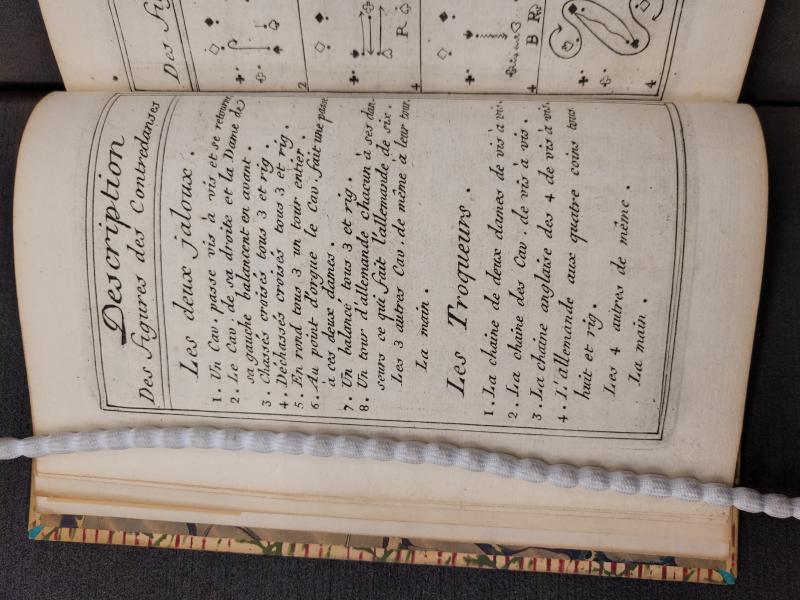 Description
Des figures des Contredanses
Les deux jaloux.
1. Un Cav. passe vis à vis et se retourne
2. Le Cav. de sa droite et la Dame de
sa gauche balancent en avant.
3. Chassés croisés tous 3 et rig.
4. Dechassés croisés tous 3 et rig.
5. En rond tous 3 un tour entier.
6. Au point d'orgue le Cav. fait une passe
à ces deux dames.
7. Un balancé tous 3 et rig.
8. Un tour d'allemande chacun à ses dan-
seurs ce qui fait l'allemande de six.
Les 3 autres Cav. de même à leur tour.
La main.
Les Troqueurs.
1. La chaine de deux dames de vis à vis.
2. La chaine des Cav. de vis à vis.
3. La chaine anglaise des 4 de vis à vis.
4. L'allemande aux quatre coins tous
huit et rig.
Les 4 autres de même.
La main.
Des Fig
2
4
R
4
B R
4